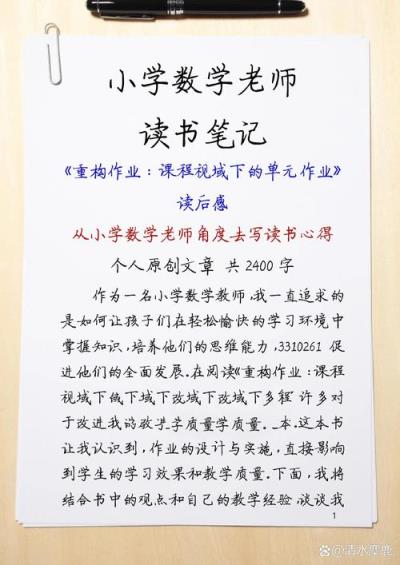 小学数学老师
读书笔记
《重构作业：课程视域下的单元作业》
读后感
从小学数学老师角度去写读书心得
个人原创文章 共2400字
作为一名小学数学教师,我一直追求的
是如何让孩子们在轻松愉快的学习环境中
掌握知识,培养他们的思维能力,3310261 促
进他们的全面发展.在阅读《重构作业：课程
视域下 下域下改域下改域下多程 许多对
于改进我 教 学质量学质量. 本.这本书
让我认识到,作业的设计与实施,直接影响
到学生的学习效果和教学质量.下面,我将
结合书中的观点和自己的教学经验 谈谈我
1
清水糜鹿